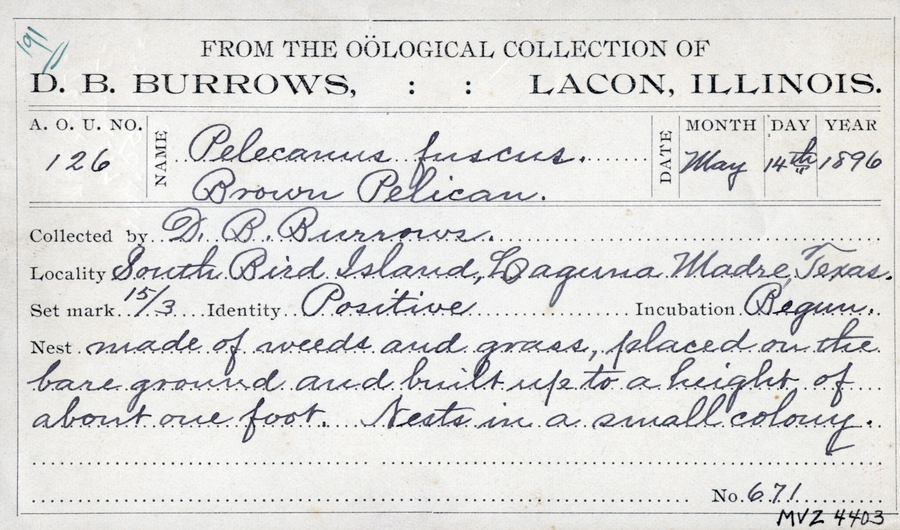 191
FROM THE OÖLOGICAL COLLECTION OF
D. B. BURROWS, : : LACON, ILLINOIS.
A. O. U. NO. NAME DATE MONTH DAY YEAR
126 Pelecanus fuscus. May 14th 1896
Brown Pelican.
Collected by D. B. Burrows.
Locality South Bird Island, Laguna Madre, Texas.
Set mark 15/3 Identity Positive Incubation Begun.
Nest made of weeds and grass, placed on the
bare ground and built up to a height of
about one foot. Nests in a small colony.
No. 671
MVZ 4403